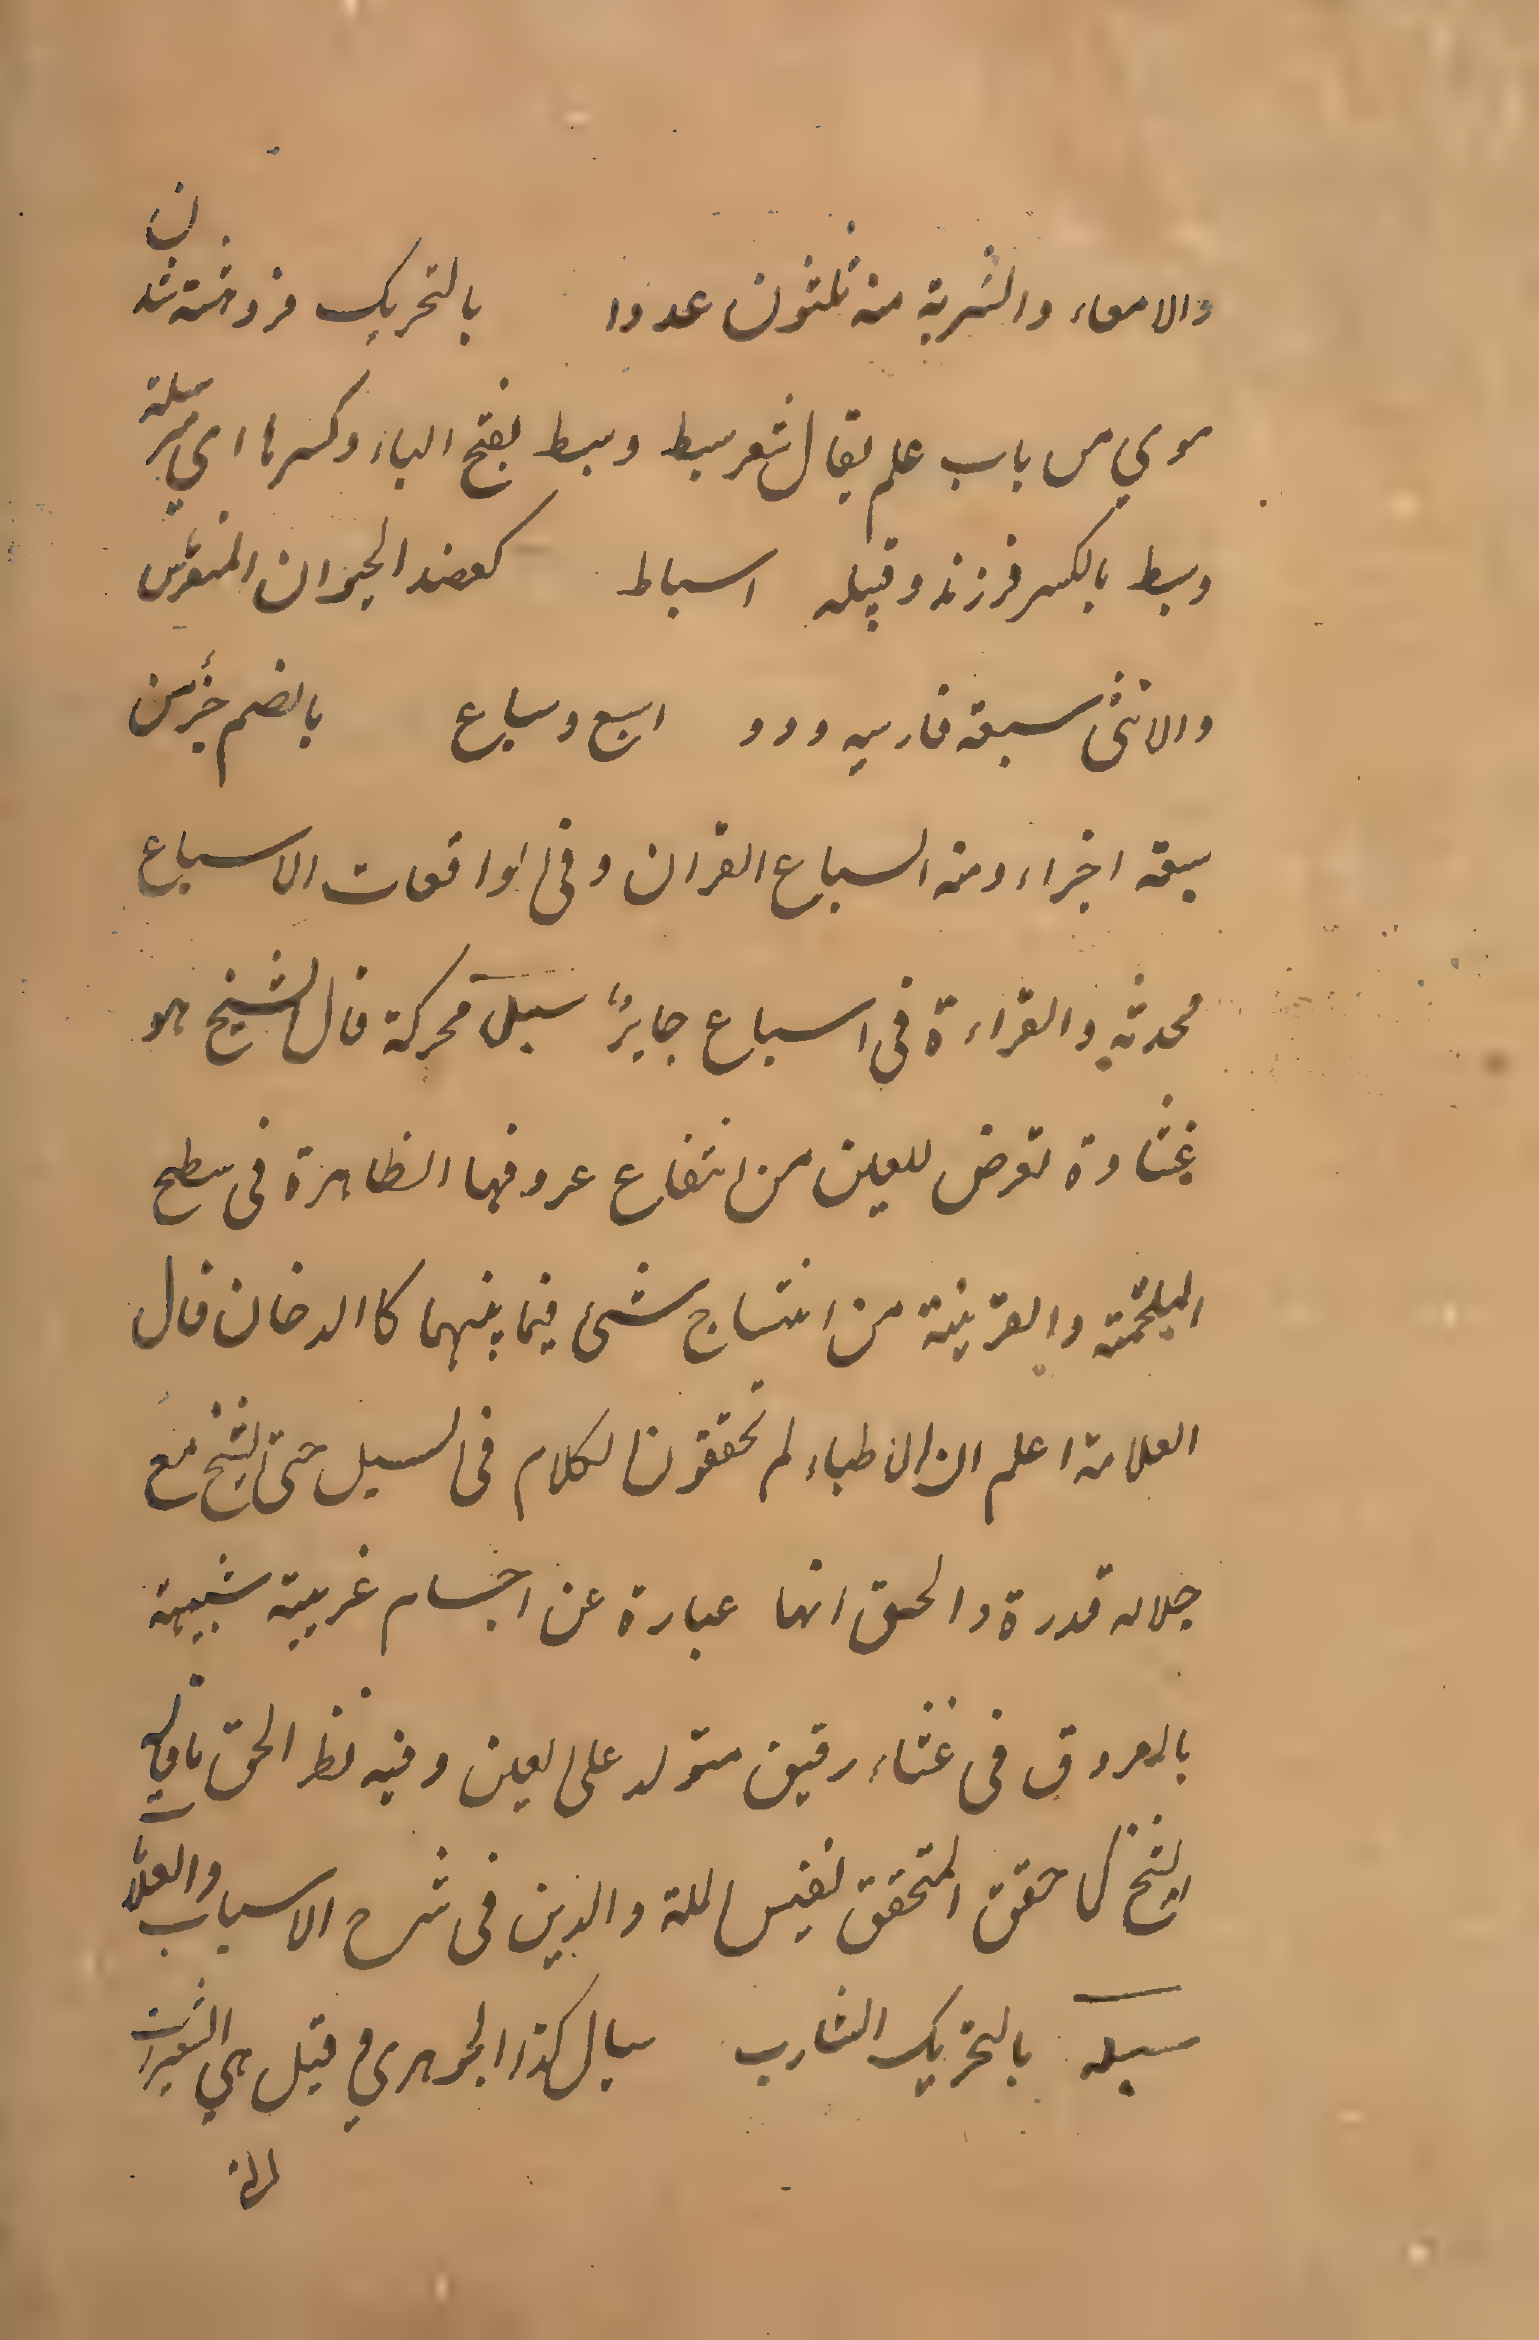 والامعاء والشربة منه ثلثون عددا بالتحريك فروهشته شدن
موي من باب علم يقال شعر سبط وسبط بفتح الباء وكسرها اي مسترسلة
وسبط بالكسر فرزند وقبيله اسباط كعضد الحيوان المفترس
والانثى سبعة فارسيه ودد اسبع وسباع بالضم جزء من
سبعة اجزاء ومنه السباع القران وفى الواقعات الاسباع
محدثه والقراءة فى اسباع جايز سبل محركة قال الشيخ هو
غشاوة تعرض للعين من انتفاخ عروقها الظاهرة فى سطح
الملتحمة والقرنية من انتساج شئ فيما بينهما كاالدخان قال
العلامة اعلم ان الاطباء لم تحققون الكلام فى السبل حتى الشيخ مع
جلاله قدرة والحق انها عبارة عن اجسام غريبة شبيهة
بالعروق فى غشاء رقيق متولد على العين وفيه نظر الحق ماقاله
الشيخ كما حقق المتحقق نفيس الملة والدين فى شرح الاسباب والعلامات
سبله بالتحريك الشارب سبال كذا الجوهري و قيل هي الشعيرات